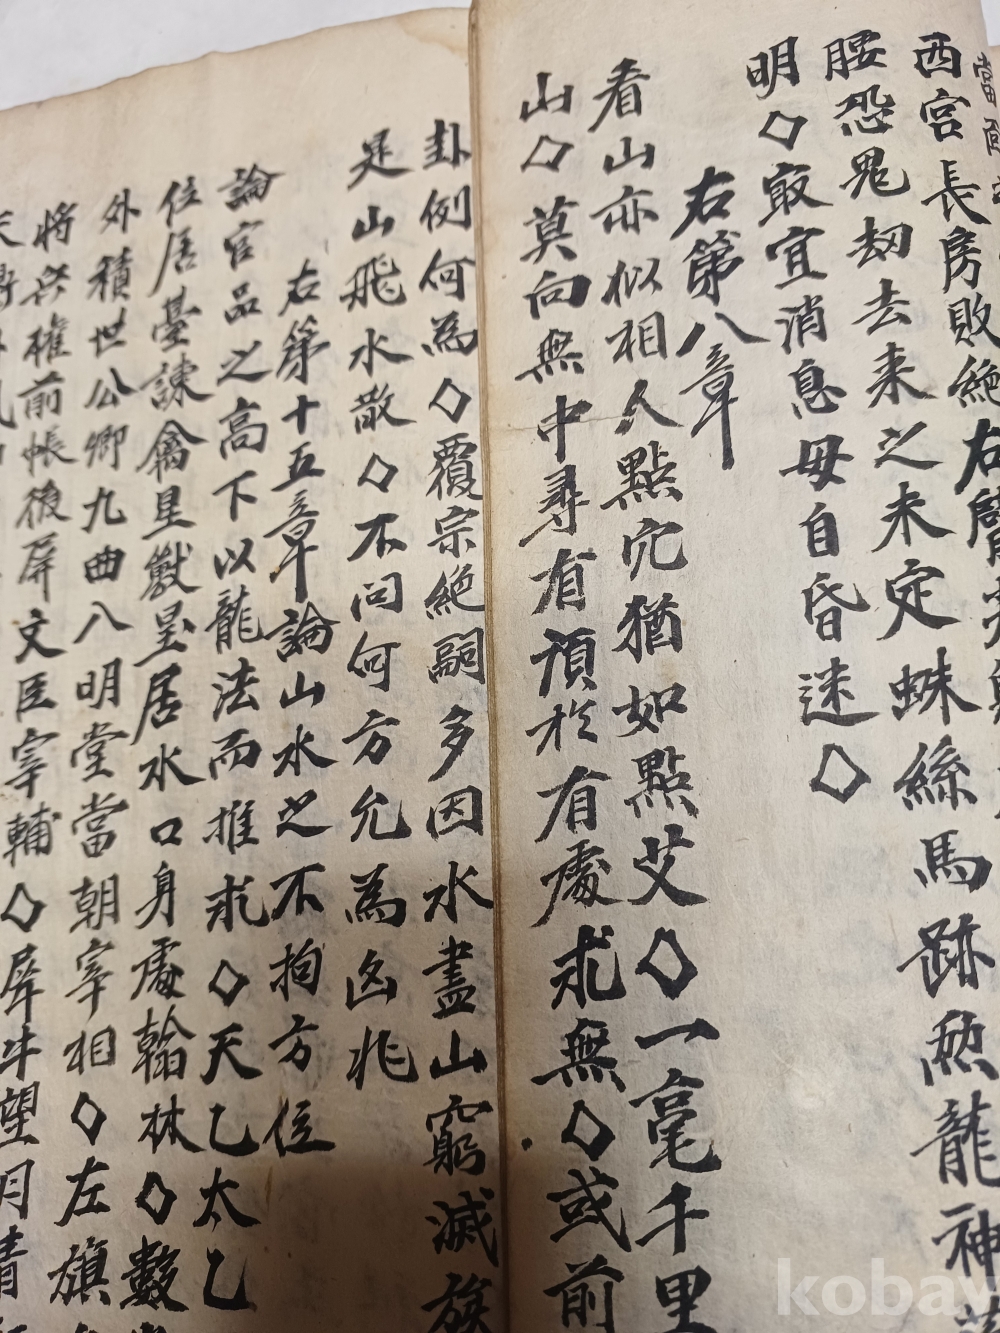 西宮長房敗絶右臂
腰恐鬼刼去来之未定蛛絲馬跡愁龍神
明◇㝡宜消息毋自昏迷◇
右第八章
看山亦似相人點穴猶如點艾◇一毫千里
山◇莫向無中尋有須於有處求無◇或前
卦例何為◇覆宗絶嗣多因水盡山窮滅族
是山飛水散◇不问何方允為凶兆
右第十五章論山水之不拘方位
論官品之高下以龍法而推求◇天乙太乙
位居臺諫禽星獸星居水口身處翰林◇數
外積世公卿九曲八明堂當朝宰相◇左旗
將兵權前帳後屏文臣宰輔◇犀牛望月
kobay